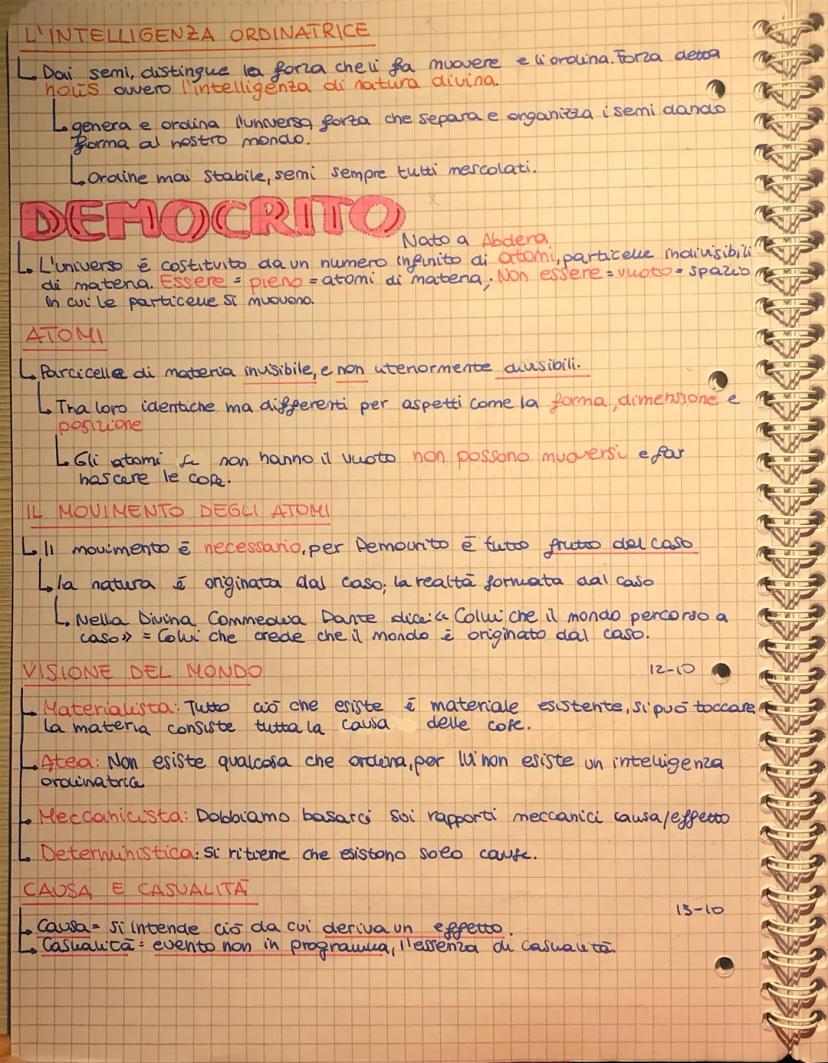 L'INTELLIGENZA ORDINATRICE
Dai semi, distingue la forza che li fa muovere e li ordina. Forza detta
noûs ovvero l'intelligenza di natura divina.
genera e ordina l'universo, forza che separa e organizza i semi dando
forma al nostro mondo.
Ordine mai stabile, semi sempre tutti mescolati.
DEMOCRITO
Nato a Abdera
L'universo è costituito da un numero infinito di atomi, particelle indivisibili
di materia. Essere = pieno = atomi di materia; Non essere = vuoto = spazio
in cui le particelle si muovono.
ATOMI
Parcicelle di materia invisibile, e non utenormente divisibili.
Tra loro identiche ma differenti per aspetti come la forma, dimensione e
posizione
Gli atomi se non hanno il vuoto non possono muoversi e far
nascere le cose.
IL MOVIMENTO DEGLI ATOMI
Il movimento è necessario, per Democrito è tutto frutto del caso
la natura è originata dal caso; la realtà formata dal caso
Nella Divina Commedia Dante dice: << Colui che il mondo percorso a
caso >> = Colui che crede che il mondo è originato dal caso.
VISIONE DEL MONDO 12-10
Materialista: Tutto ciò che esiste è materiale esistente, si può toccare
la materia consiste tutta la causa delle cose.
Atea: Non esiste qualcosa che ordina, per lui non esiste un intelligenza
ordinatrice
Meccanicista: Dobbiamo basarci soi rapporti meccanici causa/effetto
Deterministica: Si ritiene che esistono solo cause.
CAUSA E CASUALITÀ
13-10
Causa = si intende ciò da cui deriva un effetto.
Casualità = evento non in programma, l'essenza di casualità.